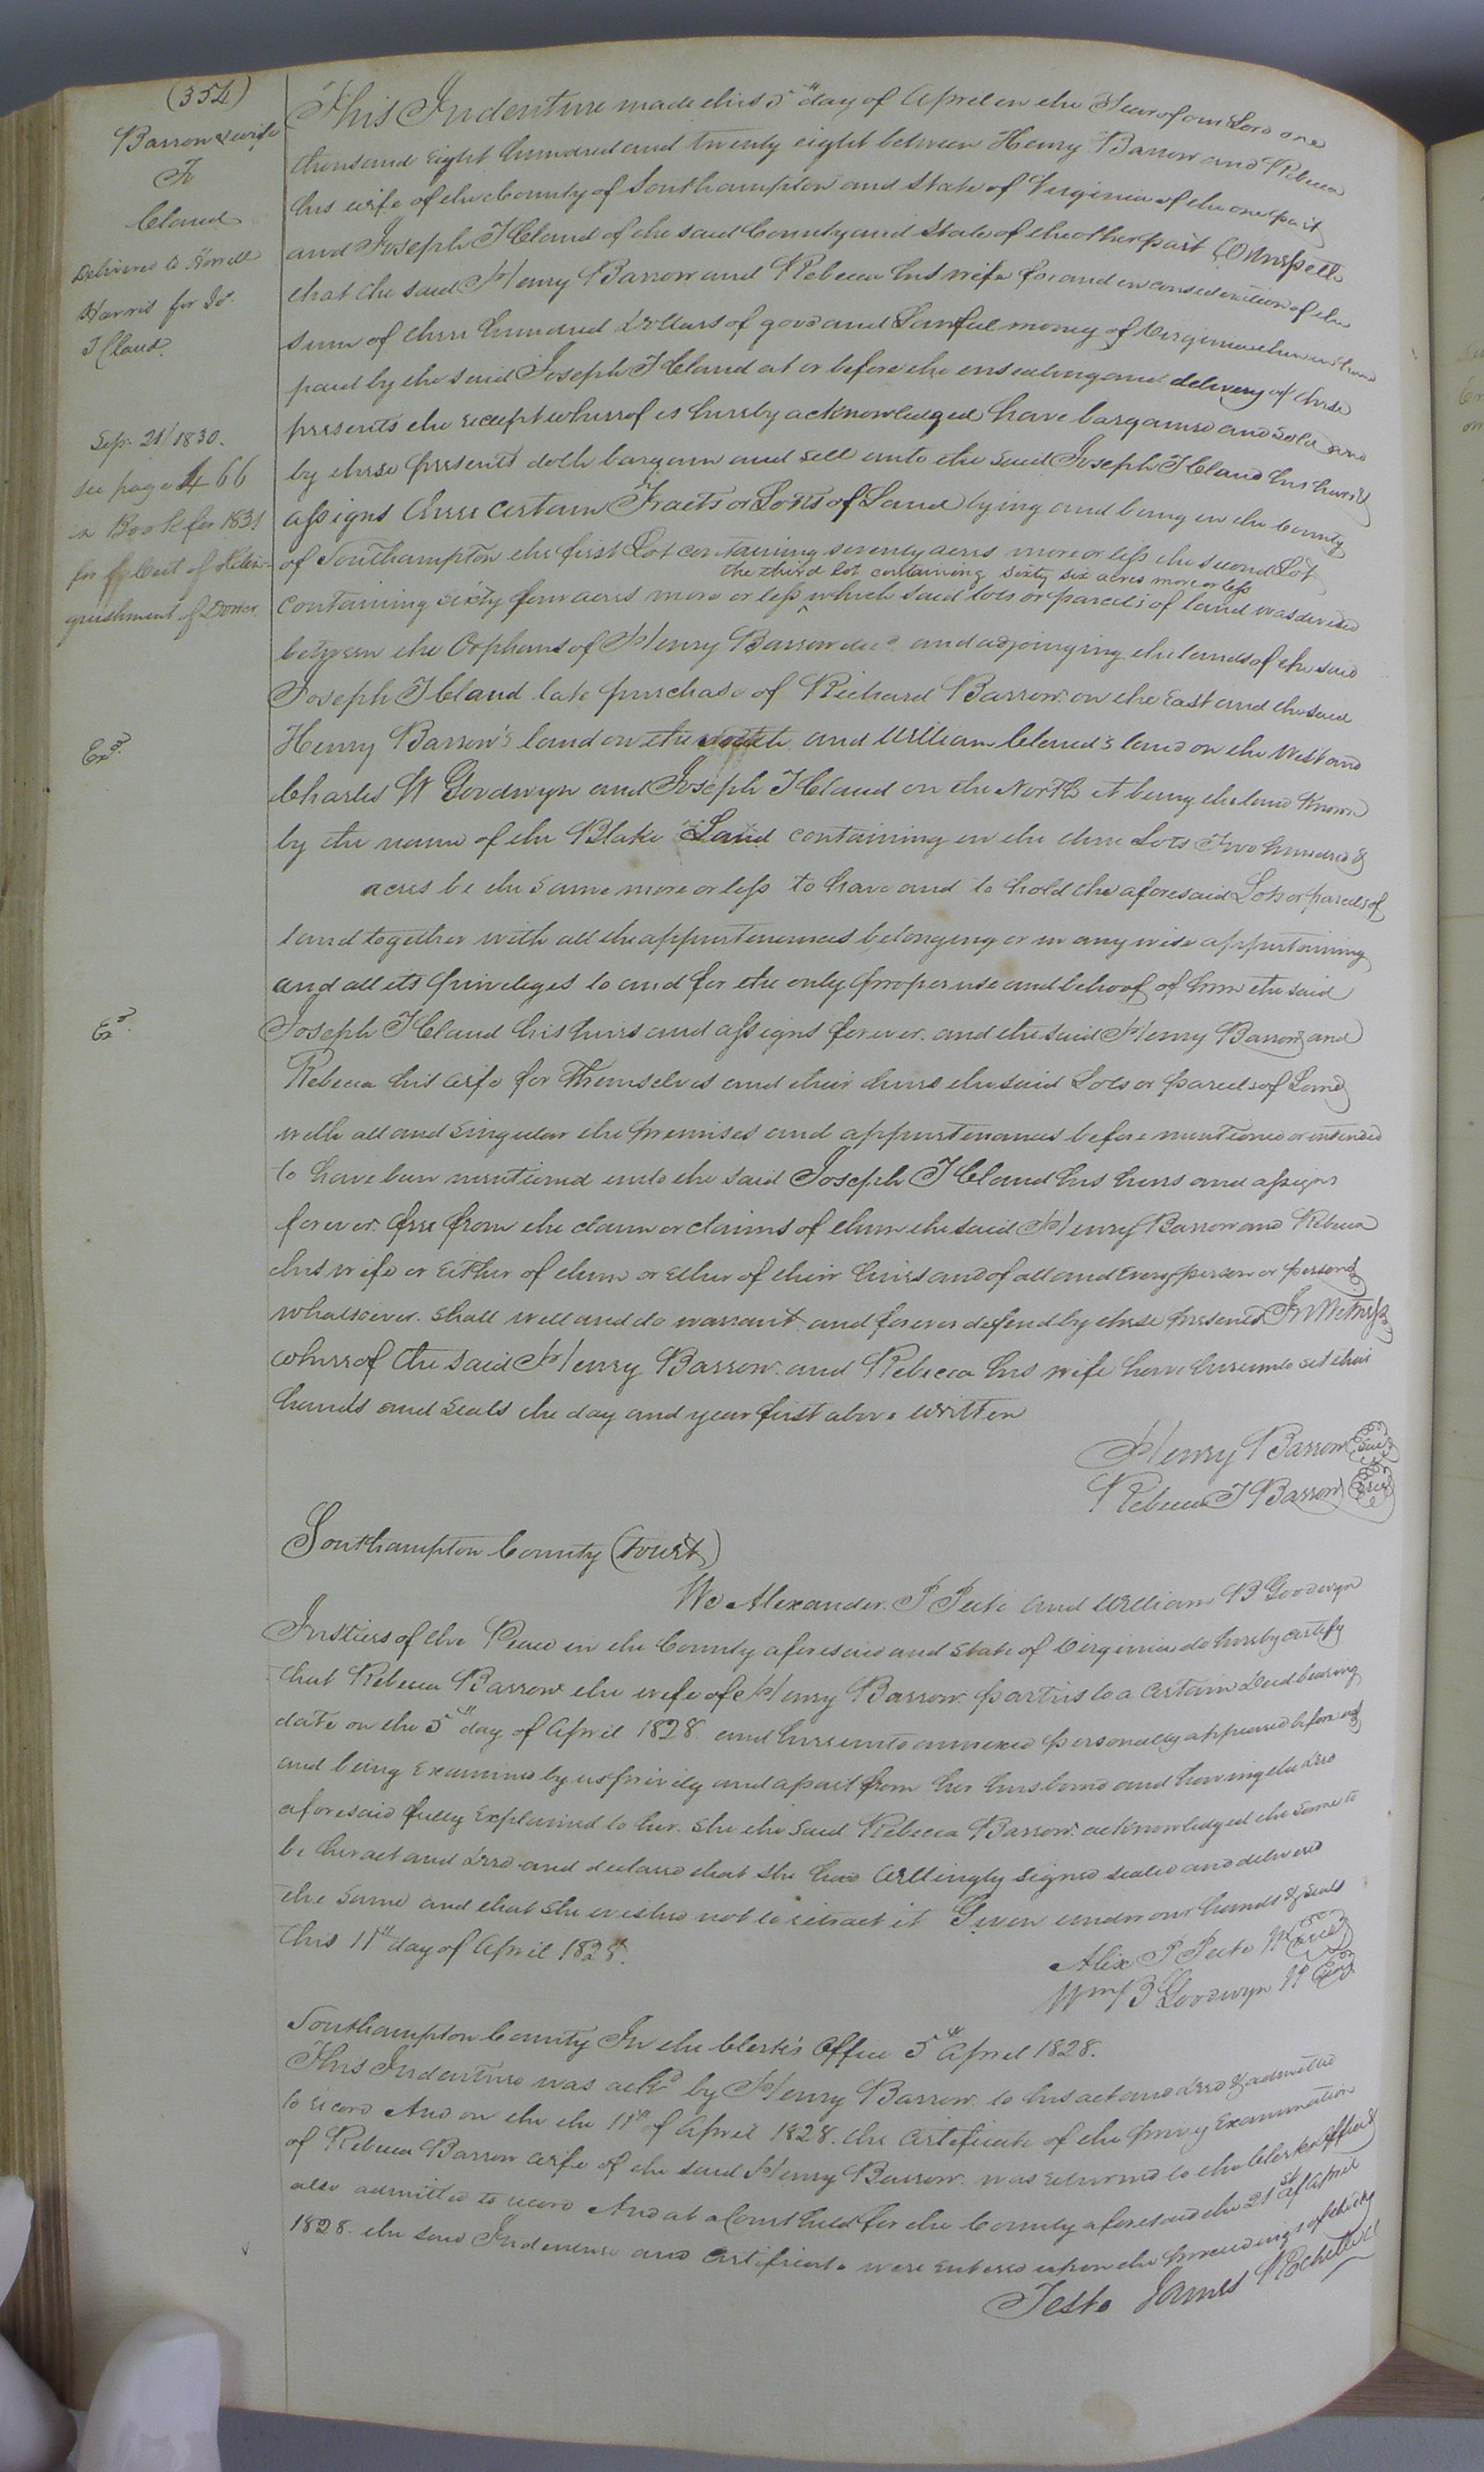 (354)
Barrow & wife
To
Claud
Delivered to Howell
Harris for Jos.
T Claud.
Sep. 21/1830.
see page 466
in Book for 1831
for of Relin-
quishment of Dower.
Exd.
Exd.
This Indenture made this 5th day of April in the Year of our Lord one
thousand Eight hundred and twenty eight between Henry Barrow and Rebecca
his wife of the County of Southampton and State of Virginia of the one part
and Joseph T Claud of the said County and State of the other part Witnesseth
that the said Henry Barrow and Rebecca his wife for and in consideration of the
sum of three hundred Dollars of good and Lawful money of Virginia them in hand
paid by the said Joseph T Claud at or before the ensealing and delivery of these
presents the receipt whereof is hereby acknowledged have bargained and sold and
by these presents doth bargain and sell unto the said Joseph T Claud his heirs &
assigns three certain Tracts or Lotts of Land lying and being in the County
of Southampton the first Lot containing seventy acres more or less the second Lot
the third lot containing sixty six acres more or less
containing sixty four acres more or less ^ which said lots or parcels of land was devided
between the Orphans of Henry Barrow decd. and adjoinging the lands of the said
Joseph T Claud late purchase of Richard Barrow on the East and the said
Henry Barrow's land on the South and William Claud's land on the West and
Charles W Goodwyn and Joseph T Claud on the North it being the land known
by the name of the Blake Land containing in the three Lots Two hundred &
acres be the same more or less to have and to hold the aforesaid Lots or parcels of
land together with all the appurtenances belonging or in any wise appertaining
and all its priveleges to and for the only proper use and behoof of him the said
Joseph T Claud his heirs and assigns forever. and the said Henry Barrow and
Rebecca his wife for Themselves and their heirs the said Lots or parcels of Land
with all and singular the premises and appurtenances before mentioned or intended
to have been mentioned unto the said Joseph T Claud his heirs and assigns
forever free from the claim or claims of them the said Henry Barrow and Rebecca
his wife or Either of them or Either of their heirs and of all and Every person or persons
whatsoever. shall well and do warrant and forever defend by these presents In Witness
whereof the said Henry Barrow and Rebecca his wife have hereunto set their
hands and seals the day and year first above written
Henry Barrow Seal
Rebecca T Barrow Seal
Southampton County (towit)
We Alexander P Peete and William B Goodwyn
Justices of the Peace in the County aforesaid and State of Virginia do hereby certify
that Rebecca Barrow the wife of Henry Barrow parties to a certain Deed bearing
date on the 5th day of April 1828. and hereunto annexed personally appeared before us
and being Examined by us privily and apart from her husband and having the Deed
aforesaid fully Explained to her. she the said Rebecca Barrow acknowledged the same to
be her act and Deed and declared that she had Willingly signed sealed and delivered
the same and that she wished not to retract it Given under our hands & seals
this 11th day of April 1828.
Alex P Peete Seal
Wm B Goodwyn Seal
Southampton County In the Clerk's Office 5th April 1828.
This Indenture was ackd by Henry Barrow to his act and Deed & admitted
to record And on the the 11th of April 1828. the Certificate of the privy Examination
of Rebecca Barrow wife of the said Henry Barrow was returned to the Clerks office &
also admitted to record And at a Court held for the County aforesaid the 21st of April
1828. the said Indenture and Certificate were Entered upon the proceedings of the day
Teste James Rochelle